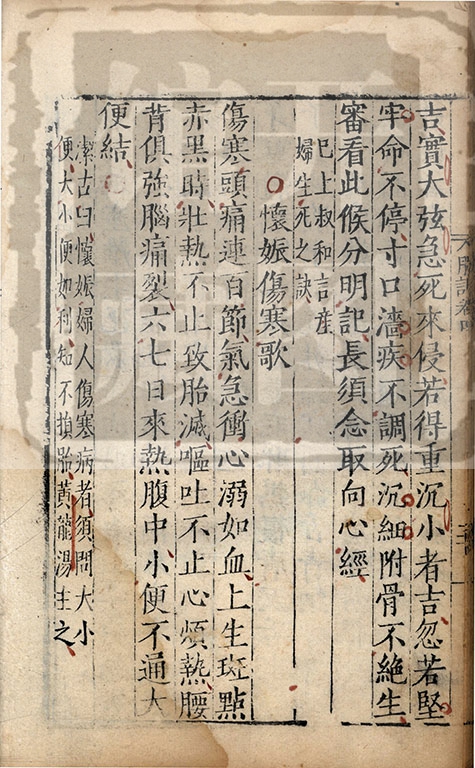 吉實大弦急死來侵若得重沉小者吉忽若堅
牢命不停寸口濇疾不調死沉細附骨不絕生
審看此候分明記長須念取向心經
巳上叔和言産
婦生死之訣
○懷娠傷寒歌
傷寒頭痛連百節氣急衝心溺如血上生斑點
赤黑時壯熱不止致胎滅嘔吐不止心煩熱腰
背俱強腦痛裂六七日來熱腹中小便不通大
便結
潔古曰懷娠婦人傷寒病者須問大小
便大小便如利知不損胎黃龍湯主之